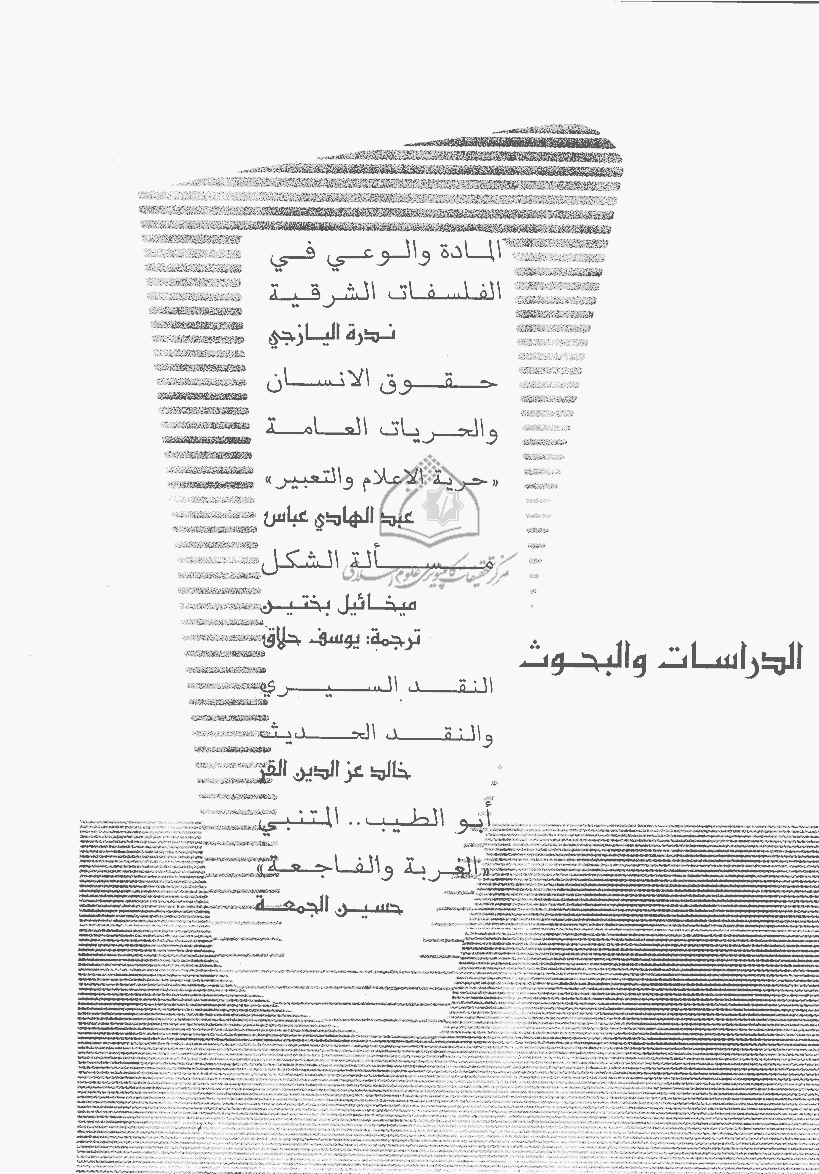 المادة والوعي في
الفلسفات الشرقية
ندرة اليازجي
حقوق الانسان
والحريات العامة
«حرية الإعلام والتعبير»
عبد الهادي عباس
مسألة الشكل
مركز تحقیقات کامپیوتری علوم اسلامی
ميخائيل بختين
ترجمة: يوسف حلاق
الدراسات والبحوث
النقد السيري
والنقد الحديث
خالد عز الدين القز
أبو الطيب.. المتنبي
«الغربة والفاجعة»
حسين الجمعة